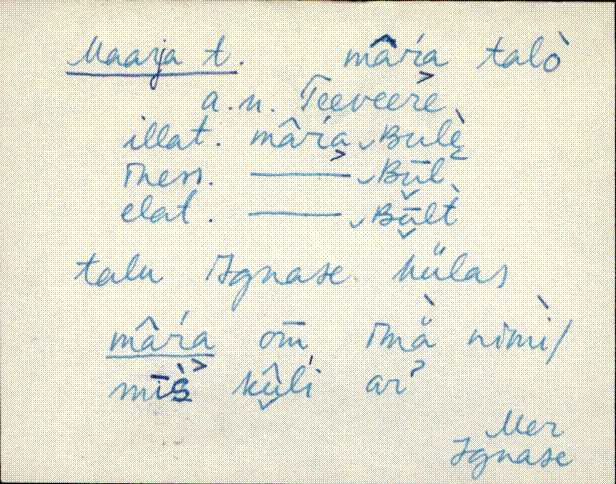 Maarja t. mâŕia talò
a. n. Teeveere
illat. mâŕia Bulè
iness. ——— Būl
elat. ——— Būlt
talu Ignase külas
mâŕia om̄ imä̀ nimì/
mīš kûli ar̓
Mer
Ignase